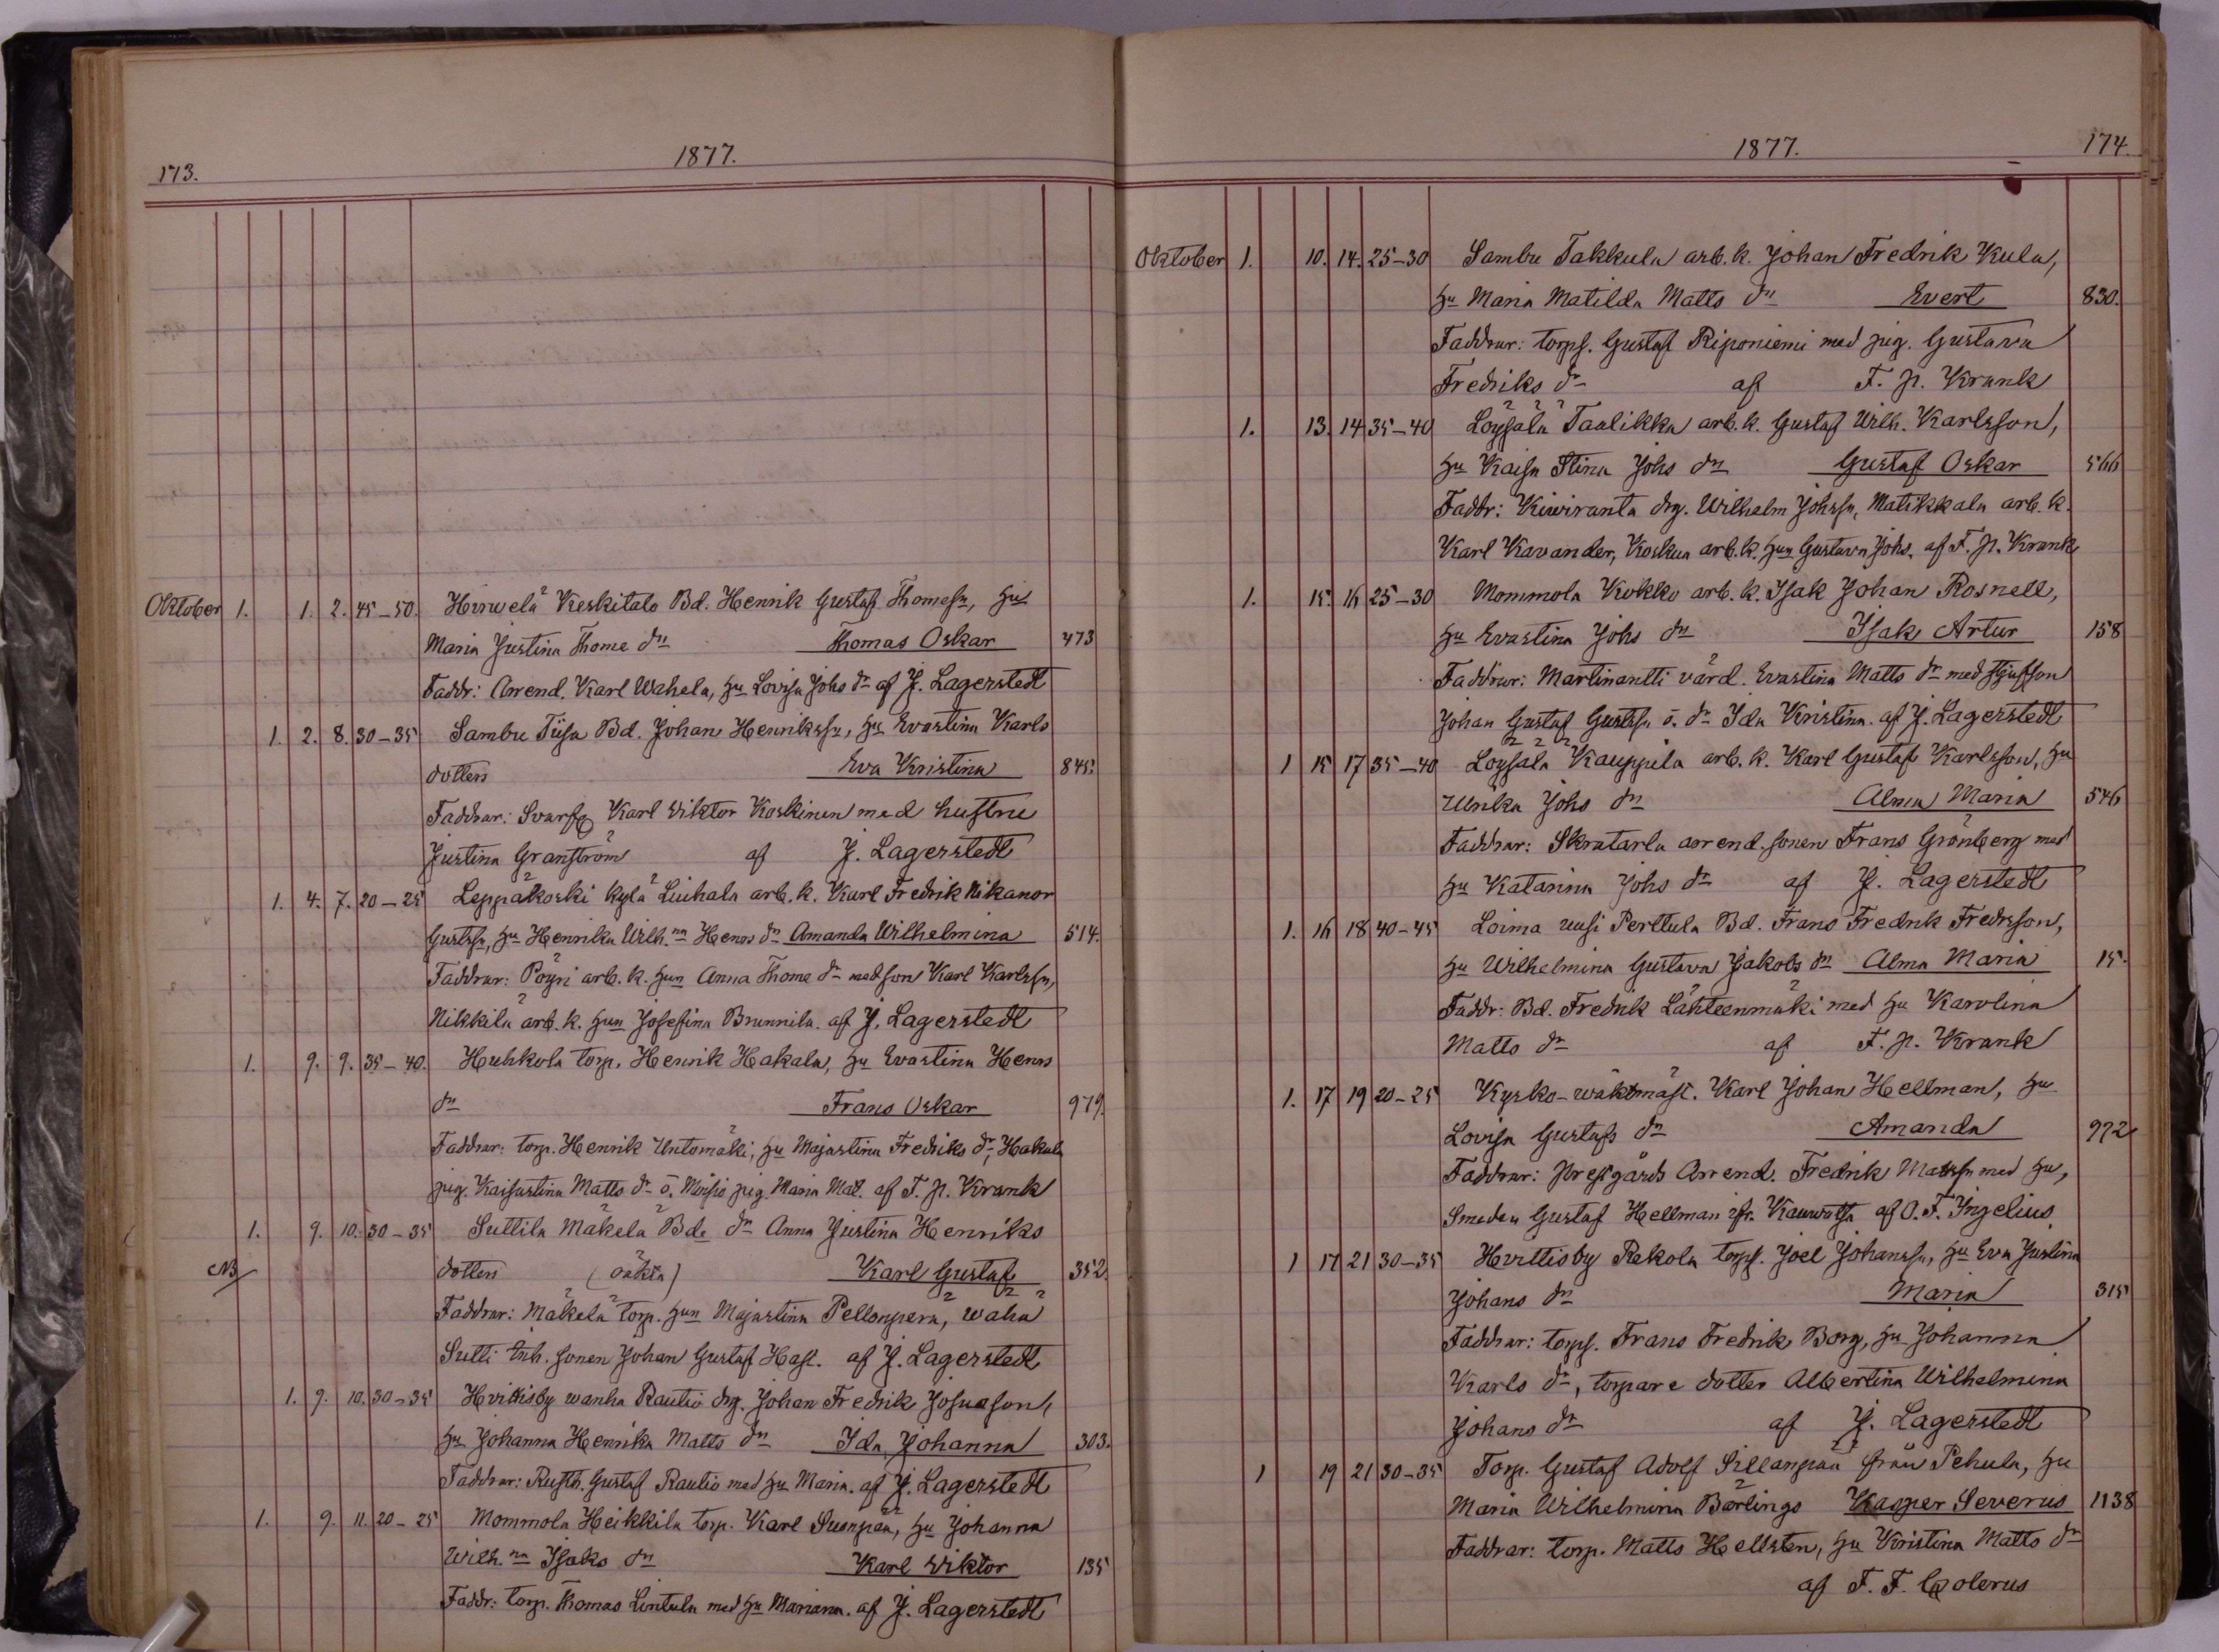 173.
1877.
Oktober 1. 1. 2. 45–50. Hirwelä Keskitalo Bd. Henrik Gustaf Thomess., hu
Maria Justina Thome dr Thomas Oskar 473
Faddr: Arrend. Karl Wahela, hu Lovisa Johs dr af J. Lagerstedt
1. 2. 8. 30–35 Sambu Tiisa Bd. Johan Henrikss., hu Evastina Karls
dotter Eva Kristina 845.
Faddrar: Svarf. Karl Viktor Koskinen med hustru
Justina Granström af J. Lagerstedt
1. 4. 7. 20–25 Leppäkoski kylä Liuhala arb. k. Karl Fredrik Nikanor
Gustss., hu Henrika Wilh.na Henrs dr Amanda Wilhelmina 514.
Faddrar: Pöyri arb. k. hun Anna Thome dr med son Karl Karlss.,
Nikkilä arb. k. hun Josefina Brunnila. af J. Lagerstedt
1. 9. 9. 35–40. Huhkola torp. Henrik Hakala, hu Evastina Henrs
dr Frans Oskar 979.
Faddrar: torp. Henrik Untomäki, hu Majastina Fredriks dr, Hakula
pig. Kaisastina Matts dr o. Moisio pig. Maria Mat. af F. H. Krank
1. 9. 10. 30–35 Suttila Mäkelä Bde dr Anna Justina Henriks
NB dotter (oäkta) Karl Gustaf 352.
Faddrar: Mäkelä torp. hun Majastina Pellonperä, wähä
Sutti Inh. sonen Johan Gustaf Hast. af J. Lagerstedt
1. 9. 10. 30–35 Hvittisby wanha Rautio drg. Johan Fredrik Josuason,
hu Johanna Henrika Matts dr Ida Johanna 303.
Faddrar: Rusth. Gustaf Rautio med hu Maria. af J. Lagerstedt
1. 9. 11. 20–25 Mommola Heikkilä torp. Karl Suonpää, hu Johanna
Wilh.na Isaks dr Karl Viktor 135
Faddr: torp. Thomas Lintula med hu Mariana. af J. Lagerstedt
1877. 174.
Oktober 1. 10. 14. 25–30 Sambu Takkula arb. k. Johan Fredrik Kula,
hu Maria Matilda Matts dr Evert 830.
Faddrar: torps. Gustaf Riponiemi med pig. Gustava
Fredriks dr af F. H. Krank
1. 13. 14 35–40 Löysälä Taalikka arb. k. Gustaf Wilh. Karlsson,
hu Kaisa Stina Johs dr Gustaf Oskar 566
Faddr: Kiwiranta drg. Wilhelm Johss., Matikkala arb. k.
Karl Kavander, Koskua arb. k. hun Gustava Johs. af F. H. Krank
1. 15. 16 25–30 Mommola Kokko arb. k. Isak Johan Rosnell,
hu Evastina Johs dr Isak Artur 158
Faddrar: Martinantti värd. Evastina Matts dr med styfson
Johan Gustaf Gustss. o. dr Ida Kristina. af J. Lagerstedt
1 15 17 35–40 Löysälä Kauppila arb. k. Karl Gustaf Karlsson, hu
Ulrika Johs dr Alma Maria 546
Faddrar: Skratarla arrend. sonen Frans Grönberg med
hu Katarina Johs dr af J. Lagerstedt
1. 16 18 40–45 Loima uusi Perttula Bd. Frans Fredrik Fredrsson,
hu Wilhelmina Gustava Jakobs dr Alma Maria 15.
Faddr: Bd. Fredrik Lähteenmäki med hu Karolina
Matts dr af F. H. Krank
1. 17 19 20–25 Kyrko-wäktmäst. Karl Johan Hellman, hu
Lovisa Gustafs dr Amanda 972
Faddrar: Prestgårds Arrend. Fredrik Matss. med hu,
Smeden Gustaf Hellman ifr. Kauwatsa af O. F. Ingelius
1 17 21 30–35 Hvittisby Rekola torps. Joel Johanss., hu Eva Justina
Johans dr Maria 315
Faddrar: torps. Frans Fredrik Borg, hu Johanna
Karls dr, torpare dotter Albertina Wilhelmina
Johans dr af J. Lagerstedt
1 19 21 30–35 Torp. Gustaf Adolf Sillanpää från Pehula, hu
Maria Wilhelmina Bärlings Kasper Severus 1138
Faddrar: torp. Matts Hellsten, hu Kristina Matts dr
af F. F. Colerus